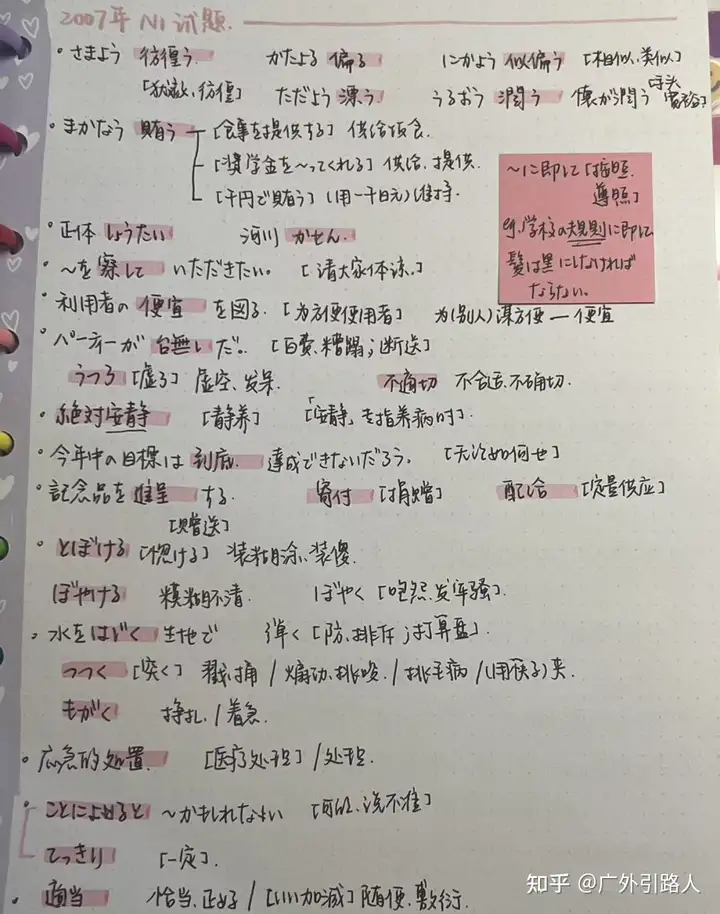 2007年 N1 试题.
・さまよう 彷徨う かたよる 偏る にかよう 似偏う [相似、类似]
[犹豫、彷徨] ただよう 漂う うるおう 潤う 懐が潤う
・まかなう 賄う [食事を提供する] 供给饭食.
[奨学金を~ってくれる] 供给、提供.
[千円で賄う] (用一千日元)维持.
~に即して [按照.
遵照]
例.学校の規則に即して
髪は黒にしなければ
ならない.
・正体 しょうたい 河川 かせん.
・~を察して いただきたい. [请大家体谅.]
・利用者の 便宜 を図る. [为方便使用者] 为(别人)谋方便—便宜
・パーティーが 台無し だ. [白费、糟蹋;断送]
うつろ [虚ろ] 虚空、发呆. 不適切 不合适、不确切.
・絶対安静 [静养] [「安静」专指养病时].
・今年中の目標は 到底. 達成できないだろう. [无论如何也]
・記念品を 進呈 する. 寄付 [捐赠] 配给 [定量供应]
[赠送]
・とぼける [惚ける] 装糊涂、装傻.
ぼやける 模糊不清. ぼやく [抱怨、发牢骚].
・水をはじく 生地で 弾く [防、排斥;打算盘].
つつく [突く] 戳、捅 / 煽动、挑唆. / 挑毛病 / (用筷子)夹.
もがく 挣扎. / 着急.
・応急的処置. [医疗处理] / 处理.
・ことによると ~かもしれない [可能、说不准]
てっきり [一定].
・適当 恰当、正好 / [いい加減] 随便、敷衍.
知乎 @广外引路人